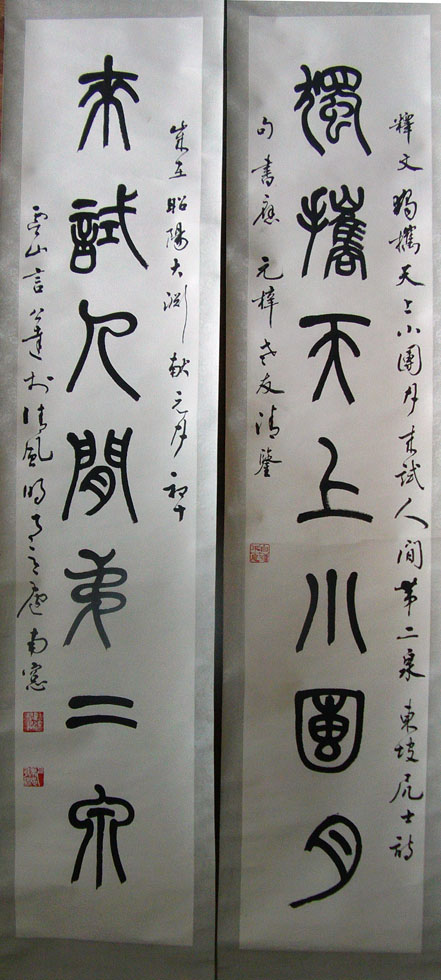 獨攜天上小團月
釋文獨攜天上小團月来試人間第二泉 東坡居士詩
句書應 元梓老友清鑒
来試人間第二泉
歲在昭陽大淵献元月初十
雲山言公達於清風明月之廬南窓